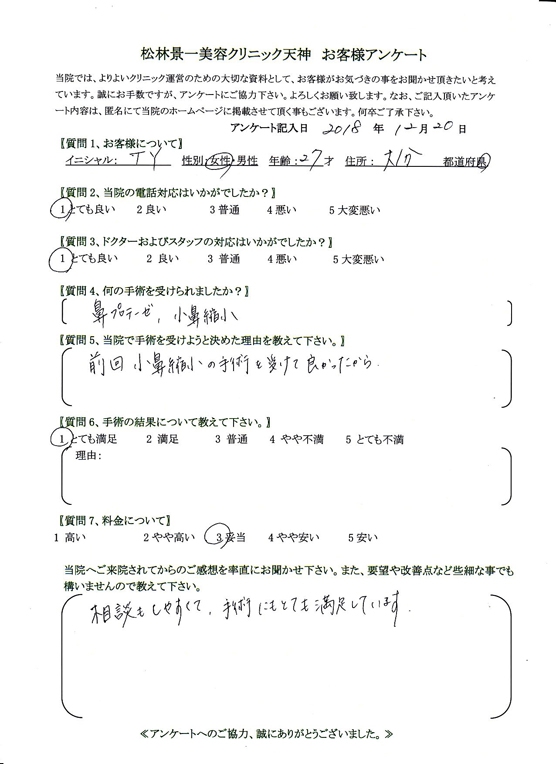 松林景一美容クリニック天神　お客様アンケート
当院では、よりよいクリニック運営のための大切な資料として、お客様がお気づきの事をお聞かせ頂きたいと考え
ています。誠にお手数ですが、アンケートにご協力下さい。よろしくお願い致します。なお、ご記入頂いたアンケ
ート内容は、匿名にて当院のホームページに掲載させて頂く事もございます。何卒ご了承下さい。
アンケート記入日 2018 年 12月20日
〖質問1、お客様について〗
イニシャル： TY 性別:女性・男性 年齢:27才 住所: 大分 都道府県
〖質問2、当院の電話対応はいかがでしたか？〗
1とても良い 2 良い 3 普通 4悪い 5大変悪い
〖質問3、ドクターおよびスタッフの対応はいかがでしたか？〗
1とても良い 2 良い 3 普通 4悪い 5大変悪い
〖質問4、何の手術を受けられましたか？〗
鼻プロテーゼ, 小鼻縮小
〖質問5、当院で手術を受けようと決めた理由を教えて下さい。〗
前回 小鼻縮小の手術を受けて良かったから.
〖質問6、手術の結果について教えて下さい。〗
1とても満足 2 満足 3 普通 4 やや不満 5 とても不満
理由:
〖質問7、料金について〗
1 高い 2やや高い 3妥当 4やや安い 5安い
当院へご来院されてからのご感想を率直にお聞かせ下さい。また、要望や改善点など些細な事でも
構いませんので教えて下さい。
相談もしやすくて, 手術にもとても満足しています.
≪アンケートへのご協力、誠にありがとうございました。≫